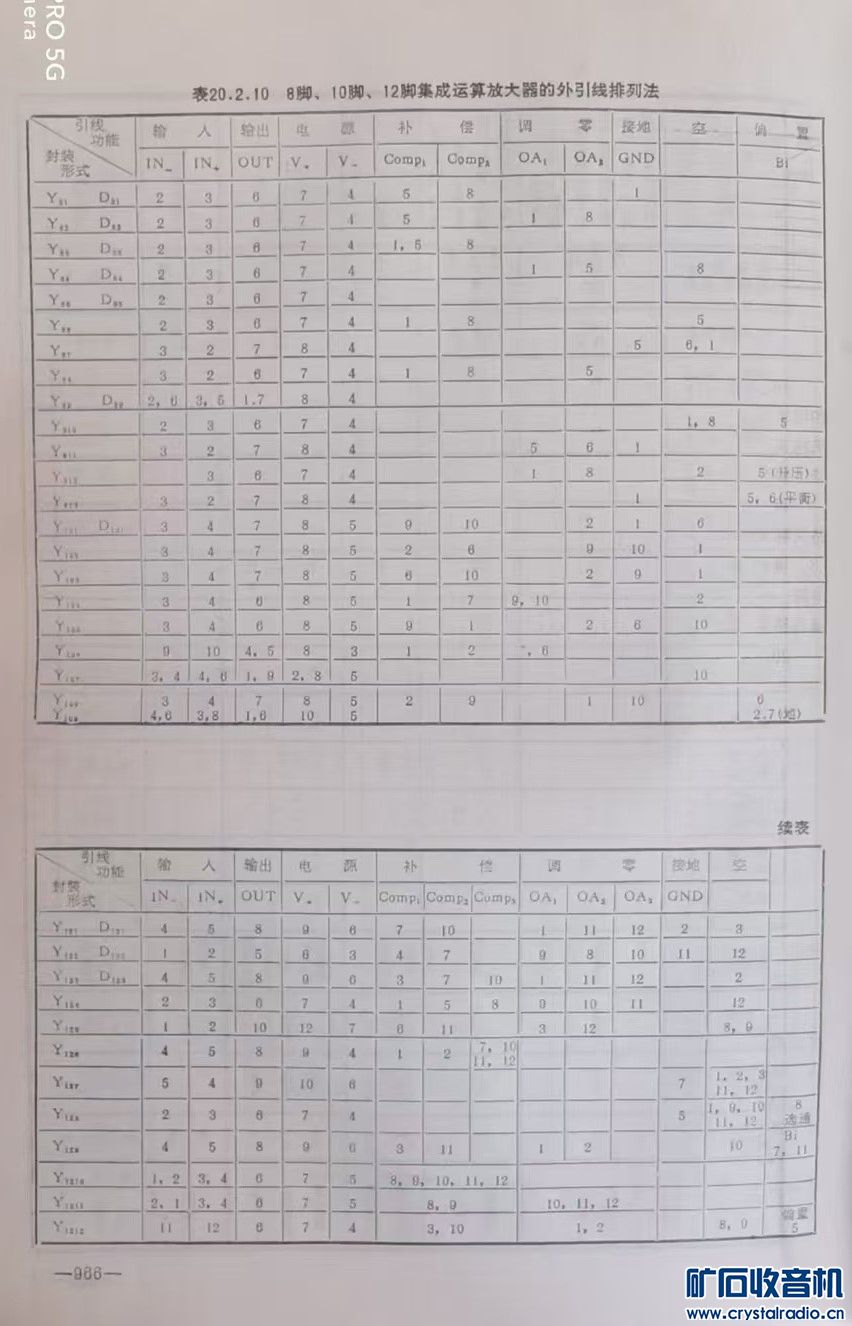 PRO 5G
mera
表20.2.10 8脚、10脚、12脚集成运算放大器的外引线排列法
引线 功能 封装 形式 输 入 输出 电 源 补 偿 调 零 接地 空 偏 置
IN₋ IN₊ OUT V₊ V₋ Comp₁ Comp₂ OA₁ OA₂ GND Bi
Y₈₁ D₈₁ 2 3 6 7 4 5 8 1
Y₈₂ D₈₂ 2 3 6 7 4 5 1 8
Y₈₃ D₈₃ 2 3 6 7 4 1, 5 8
Y₈₄ D₈₄ 2 3 6 7 4 1 5 8
Y₈₅ D₈₅ 2 3 6 7 4
Y₈₆ 2 3 6 7 4 1 8 5
Y₈₇ 3 2 7 8 4 5 6, 1
Y 3 2 6 7 4 1 8 5
Y₈₉ D₈₉ 2, 6 3, 5 1.7 8 4
Y₈₁₀ 2 3 6 7 4 1, 8 5
Y₈₁₁ 3 2 7 8 4 5 6 1
Y₈₁₂ 3 6 7 4 1 8 2
Y₈₁₃ 3 2 7 8 4 1 5, 6(平衡)
Y₁₀₁ D₁₀₁ 3 4 7 8 5 9 10 2 1 6
Y₁₀₂ 3 4 7 8 5 2 6 9 10 1
Y₁₀₃ 3 4 7 8 5 6 10 2 9 1
Y₁₀₄ 3 4 6 8 5 1 7 9, 10 2
Y₁₀₅ 3 4 6 8 5 9 1 2 6 10
Y 9 10 4, 5 8 3 1 2 , 6
Y₁₀₇ 3, 4 4, 6 1, 9 2, 8 5 10
Y 3 4 7 8 5 2 9 1 10 6
Y 4,6 3,8 1,6 10 5 2.7(地)
续表
引线 功能 封装 形式 输 入 输出 电 源 补 偿 调 零 接地 空
IN₋ IN₊ OUT V₊ V₋ Comp₁ Comp₂ Comp₃ OA₁ OA₂ OA₃ GND
Y₁₂₁ D₁₂₁ 4 5 8 9 6 7 10 1 11 12 2 3
Y₁₂₂ D₁₂₂ 1 2 5 6 3 4 7 9 8 10 11 12
Y₁₂₃ D₁₂₃ 4 5 8 9 6 3 7 10 1 11 12 2
Y₁₂₄ 2 3 6 7 4 1 5 8 9 10 11 12
Y₁₂₅ 1 2 10 12 7 6 11 3 12 8, 9
Y₁₂₆ 4 5 8 9 4 1 2 7, 10 11, 12
Y₁₂₇ 5 4 9 10 6 7 1, 2, 3 11, 12
Y₁₂₈ 2 3 6 7 4 5 1, 9, 10 11, 12 8 选通
Y₁₂₉ 4 5 8 9 6 3 11 1 2 10 Bi 7, 11
Y₁₂₁₀ 1, 2 3, 4 6 7 5 8, 9, 10, 11, 12
Y₁₂₁₁ 2, 1 3, 4 6 7 5 8, 9 10, 11, 12
Y₁₂₁₂ 11 12 6 7 4 3, 10 1, 2 8, 9 偏置 5
—966—
矿石收音机
www.crystalradio.cn